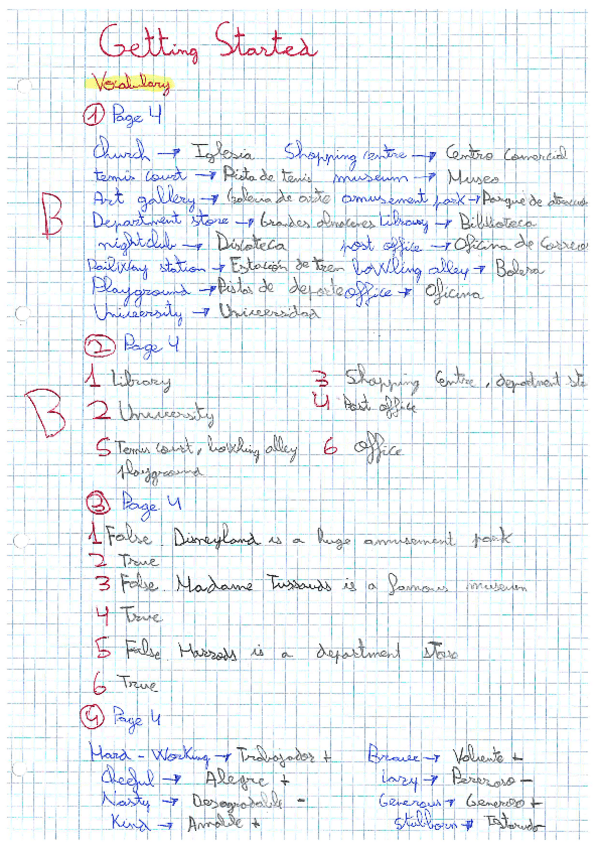 Getting Started
Vocabulary
① Page 4
Church → Iglesia Shopping centre → Centro Comercial
tennis court → Pista de tenis museum → Museo
Art gallery → Galeria de arte amusement park → Parque de
B
Department store → Grandes almacenes Library → Biblioteca
nightclub → Discoteca post office → Oficina de Correos
Railway station → Estación de tren bowling alley → Bolera
Playground → Pistas de deporte office → Oficina
University → Universidad
② Page 4
1 Library 3 Shopping Centre, department sto
B
2 University 4 Post office
5 Tennis court, bowling alley 6 Office
playground
③ Page 4
1 False. Disneyland is a huge amusement park
2 True
3 False. Madame Tussauds is a famous museum
4 True
5 False. Harrods is a department store
6 True
④ Page 4
Hard - Working → Trabajador + Brave → Valiente +
Cheeful → Alegre + Lazy → Perezoso -
Nasty → Desagradable - Generous → Generoso +
Kind → Amable + Stubborn →